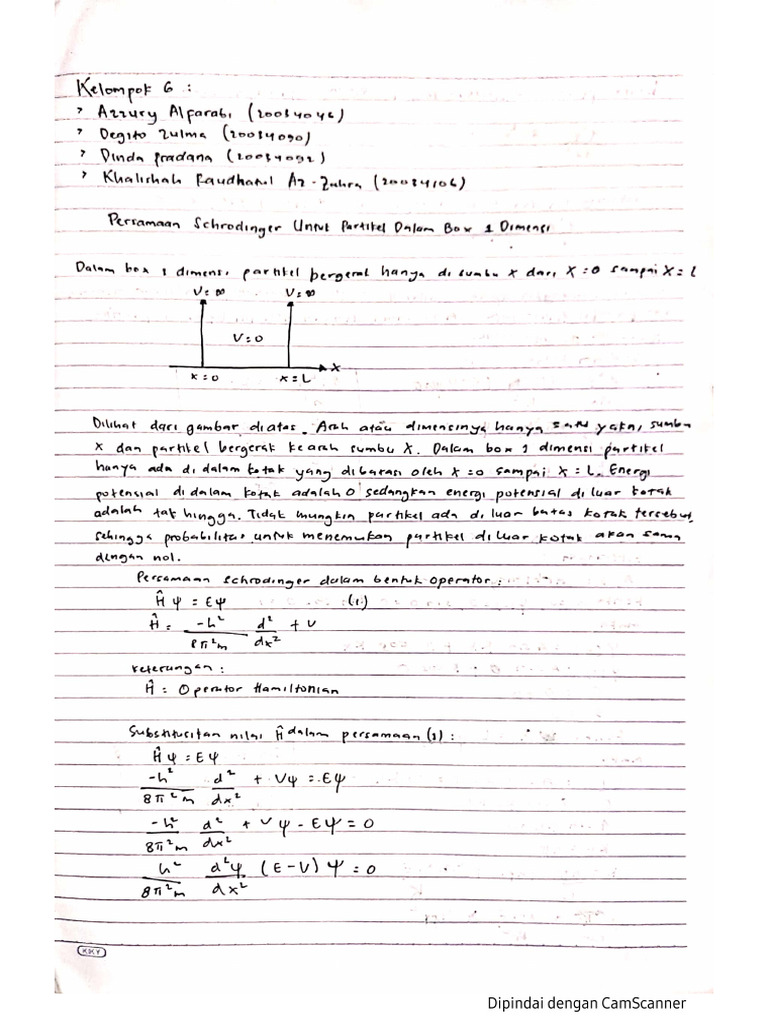 Kelompok 6 :
> Azzury Alfarabi (20034046)
> Degito Zulma (20034090)
> Dinda Pradana (20034092)
> Khalishah Raudhatul Az-Zahra (20034106)
Persamaan Schrodinger Untuk Partikel Dalam Box 1 Dimensi
Dalam box 1 dimensi, partikel bergerak hanya di sumbu x dari X=0 sampai X=L
V=∞ V=∞
V=0
X
x=0 x=L
Dilihat dari gambar diatas. Arah atau dimensinya hanya satu yakni sumbu
x dan partikel bergerak kearah sumbu x. Dalam box 1 dimensi partikel
hanya ada di dalam kotak yang dibatasi oleh x=0 sampai x=L. Energi
potensial di dalam kotak adalah 0 sedangkan energi potensial di luar kotak
adalah tak hingga. Tidak mungkin partikel ada di luar batas kotak tersebut,
sehingga probabilitas untuk menemukan partikel di luar kotak akan sama
dengan nol.
Persamaan schrodinger dalam bentuk operator :
Ĥ ψ = Eψ (1)
Ĥ = -h²/8π²m d²/dx² + V
keterangan :
Ĥ = Operator Hamiltonian
Substitusikan nilai Ĥ dalam persamaan (1) :
Ĥ ψ = Eψ
-h²/8π²m d²/dx² + Vψ = Eψ
-h²/8π²m d²/dx² + Vψ - Eψ = 0
h²/8π²m d²ψ/dx² (E-V) ψ = 0
KKY
Dipindai dengan CamScanner